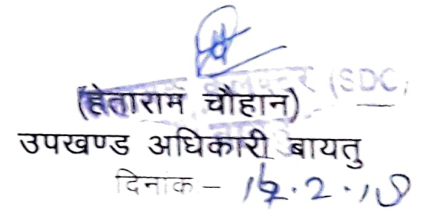 (SDC,
(हेताराम चौहान)
उपखण्ड अधिकारी बायतु
दिनांक -